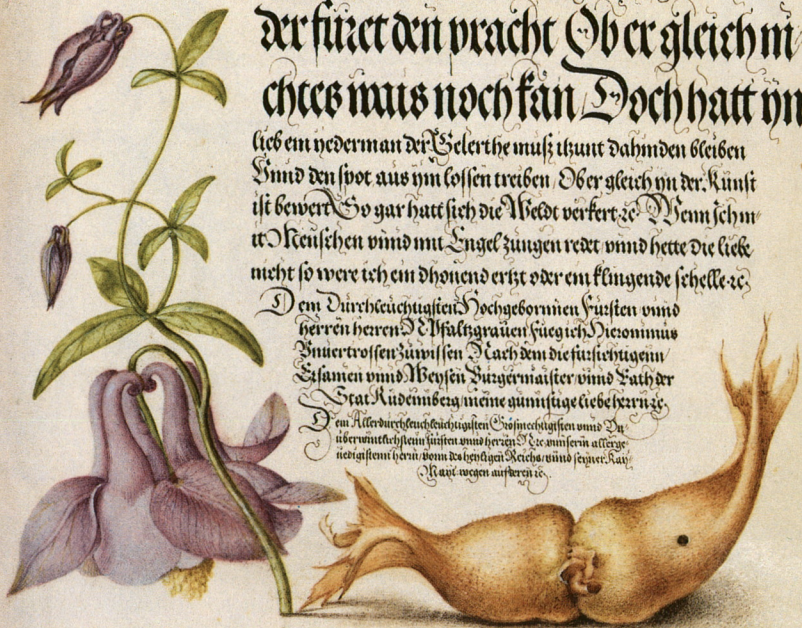 der füret den pracht Ob er gleich ni
chtes mus noch kan Doch hatt yn
lieb ein yederman der Gelerthe mus itzunt dahinden bleiben
Vnnd den spot aus ym lossen treiben Ob er gleich yn der Kunst
ist bewert So gar hatt sich die Weldt verkert ꝛc Wenn ich m
it Menschen vnnd mit Engel zungen redet vnnd hette die liebe
nicht so were ich ein dhonend ertzt oder ein klingende schelle ꝛc
Dem Durchleuchtigsten Hochgebornnen Fürsten vnnd
herren herren N Pfaltzgrauen Fueg ich Hieronimus
Vnuertrossen Zuwissen Nach dem die fursichtigenn
Ersamen vnnd Weysen Burgermaister vnnd Rath der
Stat Rudennberg meine gunnstige liebe herrn ꝛc
Dem Allerdurchleuchtigisten Grosmechtigisten vnnd
überwintlichstenn fursten vnnd herrn vnnserm allerge
nedigistenn herrn vonn des heyligen Reichs vnnd seyner Kay
May wegen aufderen ꝛc